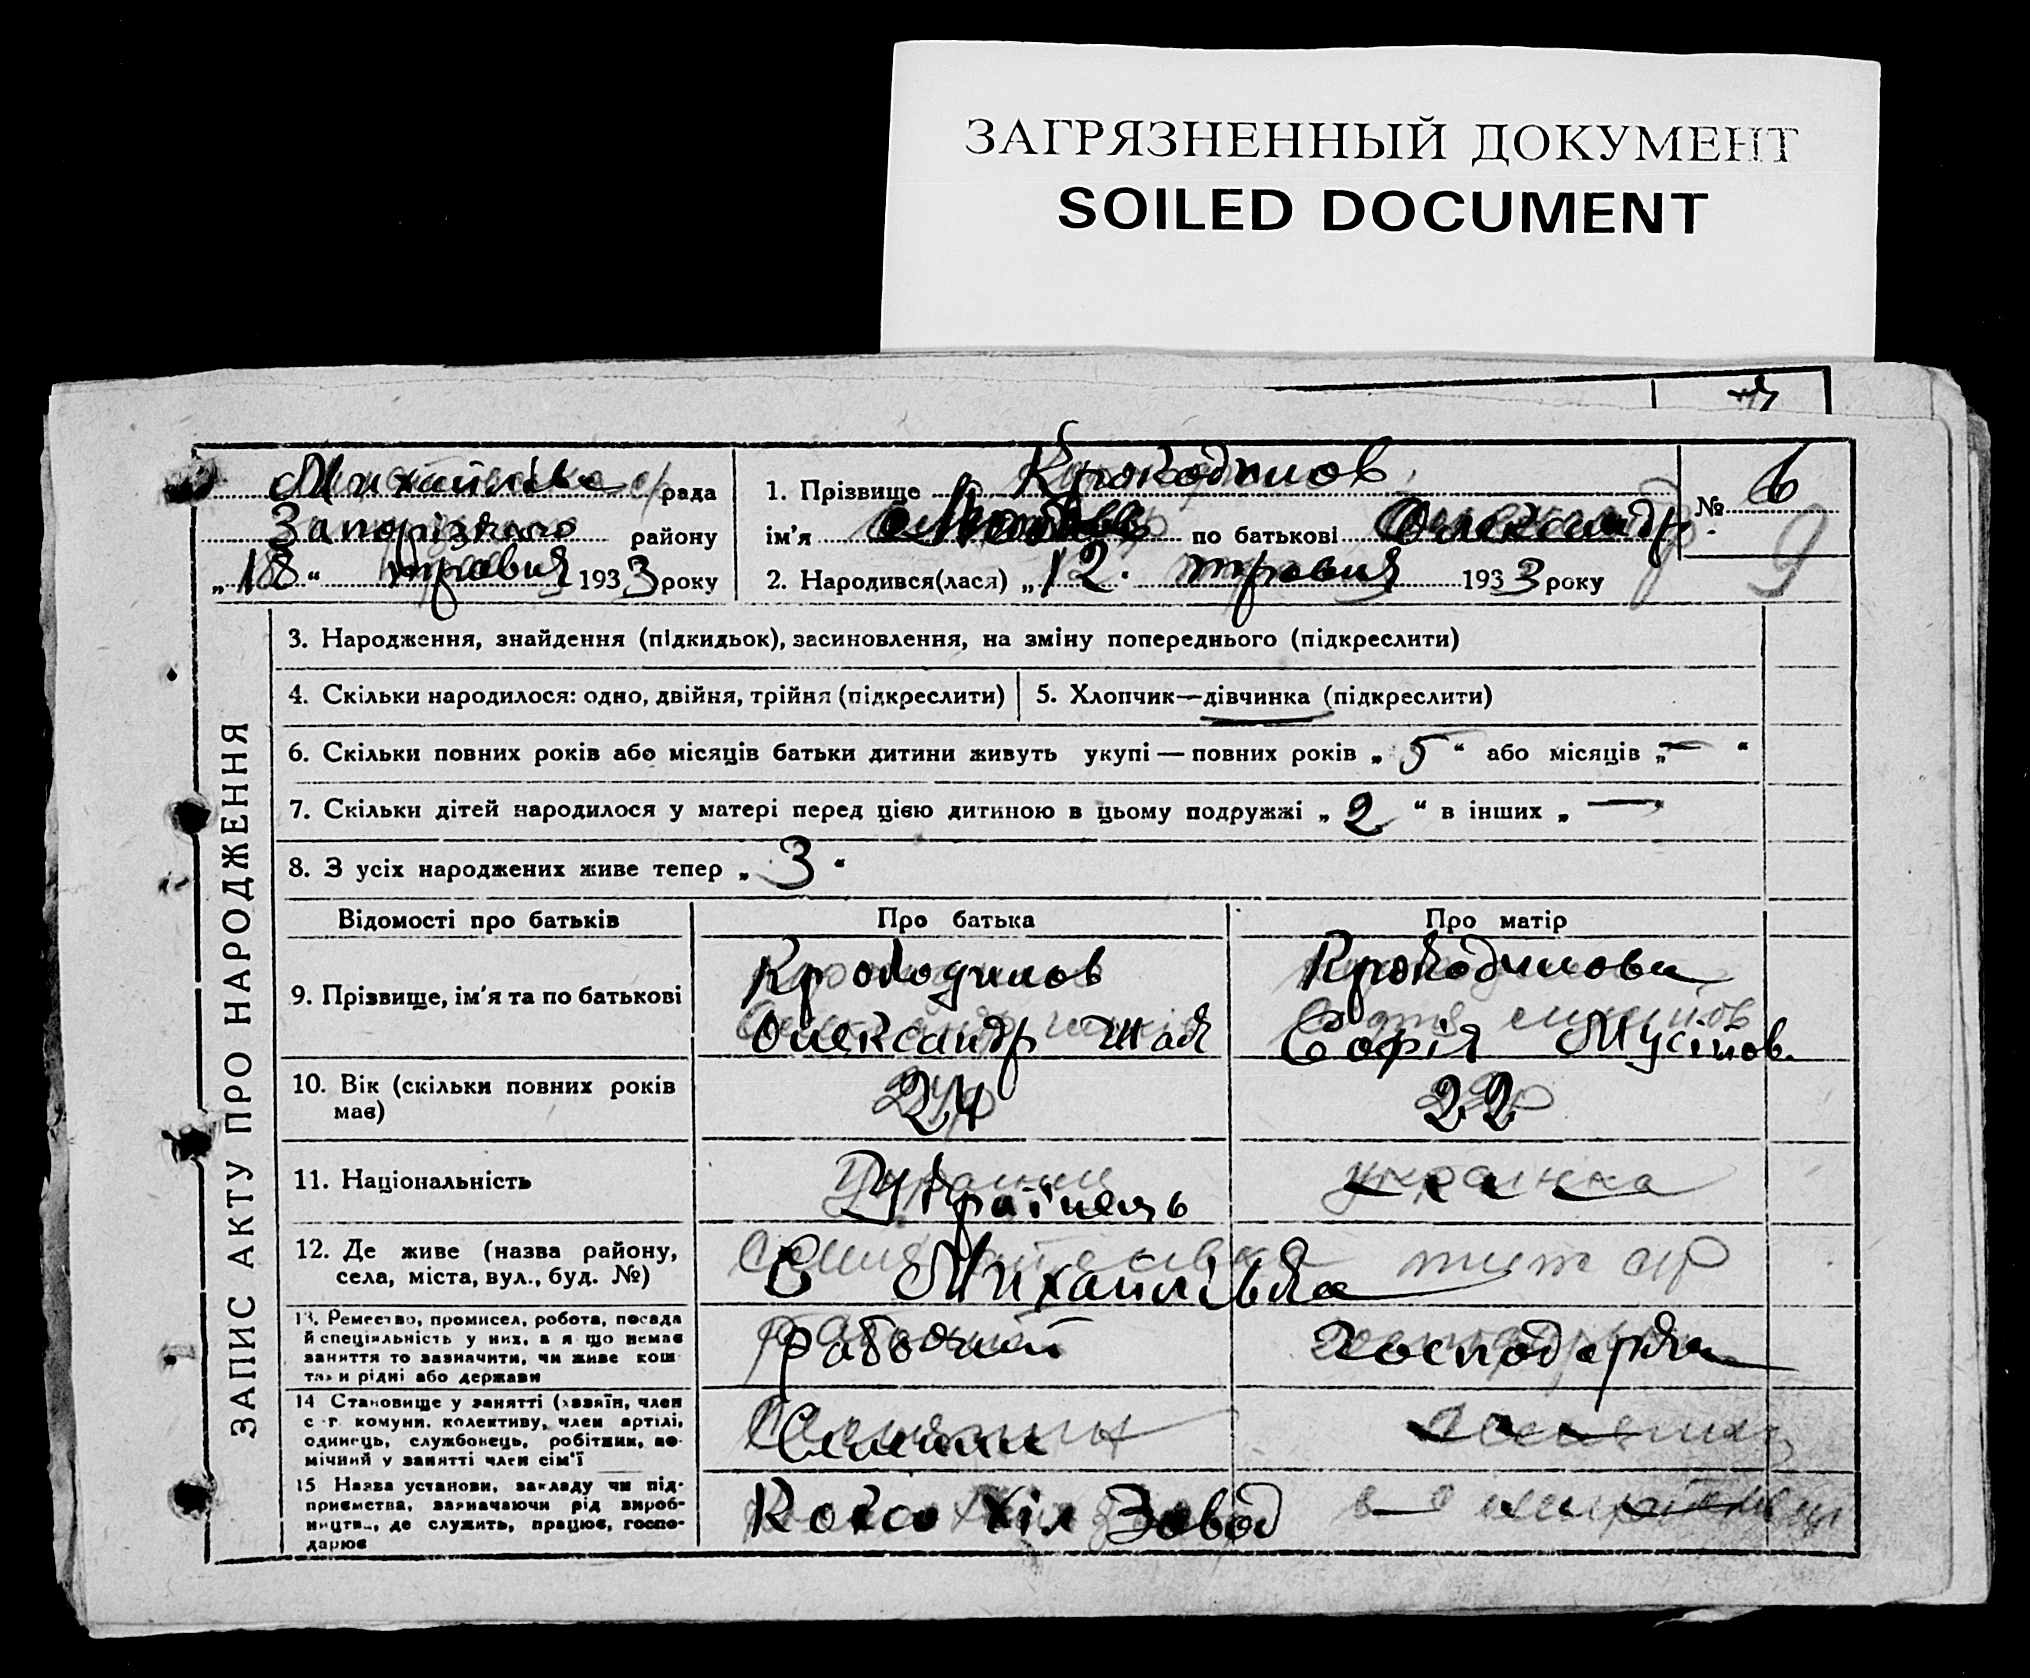 ЗАГРЯЗНЕННЫЙ ДОКУМЕНТ
SOILED DOCUMENT
ЗАПИС АКТУ ПРО НАРОДЖЕННЯ
Михайлівс рада
Запорізького району
„18“ травня 1933 року
1. Прізвище Крокодилов
ім'я по батькові Олександр.
№ 6
9
2. Народився(лася) „12. травня 1933 року
3. Народження, знайдення (підкидьок), засиновлення, на зміну попереднього (підкреслити)
4. Скільки народилося: одно, двійня, трійня (підкреслити)
5. Хлопчик—дівчинка (підкреслити)
6. Скільки повних років або місяців батьки дитини живуть укупі — повних років „5“ або місяців „—“
7. Скільки дітей народилося у матері перед цією дитиною в цьому подружжі „2“ в інших „—“
8. З усіх народжених живе тепер „3“
Відомості про батьків
Про батька
Про матір
9. Прізвище, ім'я та по батькові
Крокодилов
Олександр
Крокодилова
Софія Мусійов.
10. Вік (скільки повних років має)
24
22
11. Національність
Українець
украинка
12. Де живе (назва району, села, міста, вул., буд. №)
С Михайлівка
13. Ремество, промисел, робота, посада
й спеціяльність у них, а якщо немає
заняття то зазначити, чи живе кош
там и рідні або держави
рабочий
Господарка
14 Становище у занятті (хазяїн, член
с.-г. комуни, колективу, член артілі,
одинець, службовець, робітник, по-
мічний у занятті член сім'ї
Селянин
15 Назва установи, закладу чи під-
приємства, зазначаючи рід вироб-
ництв., де служить, працює, госпо-
дарює
Коксо Хім Завод